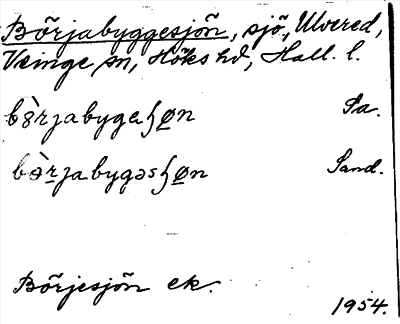 Börjabyggesjön, sjö, Ulvered,
Veinge sn, Höks hd, Hall. l.
bə̀rjabygaɧøn Sa.
bə̀rjabygəsɧøn Sand.
Börjesjön ek.
1954.